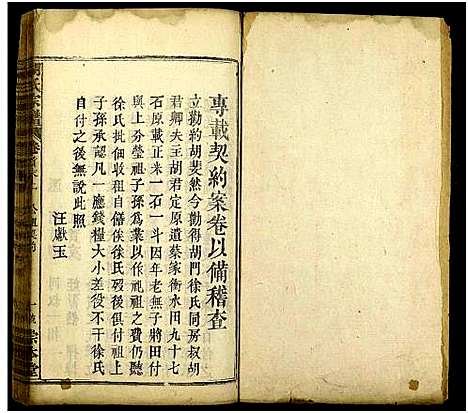 專載契約案卷以備稽查
立勸約胡斐然今勸得胡門徐氏同房叔胡
君卿夫主胡君定原遺蔡家衝水田九十七
石原載正米一石一斗因年老無子將田付
與上分塋祖子孫為業以作祀祖之費仍聽
徐氏批佃收租自僐俟徐氏歿後俱付祖上
子孫承認凡一應錢糧大小差役不干徐氏
自付之後無說此照
汪獻玉